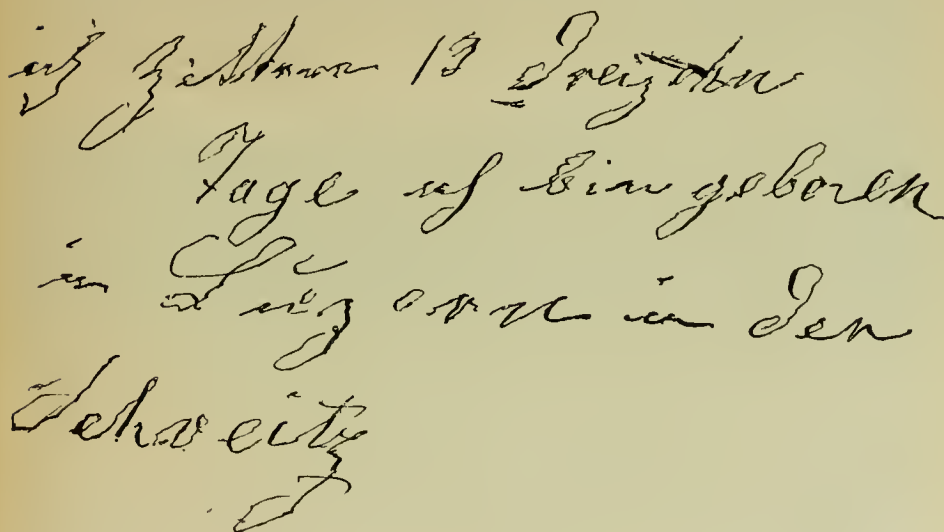 ich Zittern 13 Dreizehn
Tage ich bin geboren
in Luzern in den
Schweitz